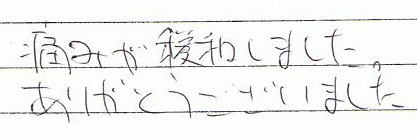 痛みが緩和しました。
ありがとうございました